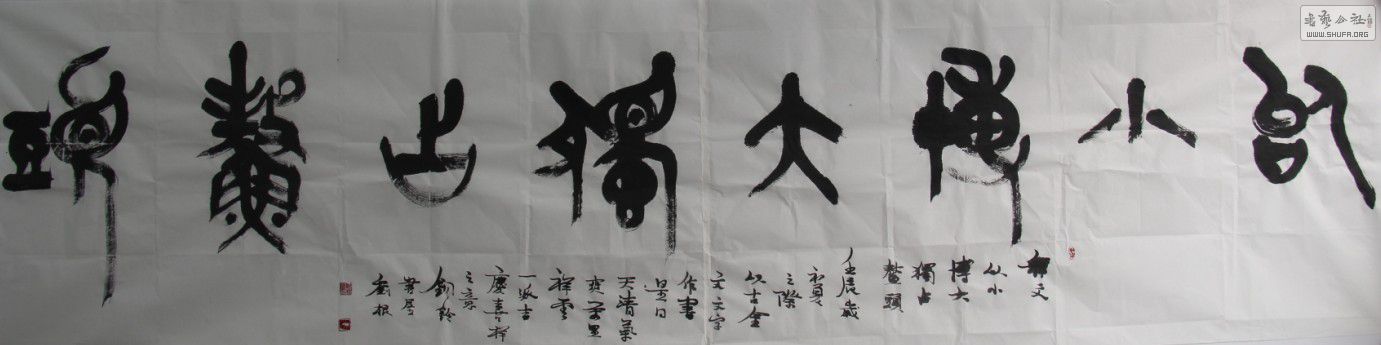 以小博大獨占鰲頭
釋文
以小
博大
獨占
鰲頭
壬辰歲
初夏
之際
以古金
文文字
作書
是日
天清氣
爽萬里
祥雲
一派吉
慶喜祥
之意
書藝公社
WWW.SHUFA.ORG